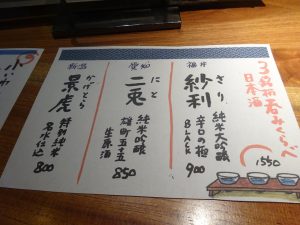 3銘柄呑みくらべ
日本酒
1550
福井
さり
紗利
純米大吟醸
辛口の極
BLACK
900
愛知
にと
二兎
純米吟醸
雄町五五
生原酒
850
新潟
かげとら
景虎
特別純米
名水仕込
800